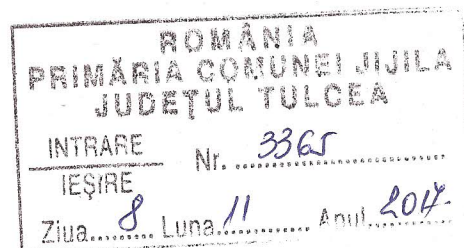 ROMÂNIA
PRIMĂRIA COMUNEI JIJILA
JUDEŢUL TULCEA
INTRARE
IEŞIRE
Nr. 3365
Ziua 8 Luna 11 Anul 2017